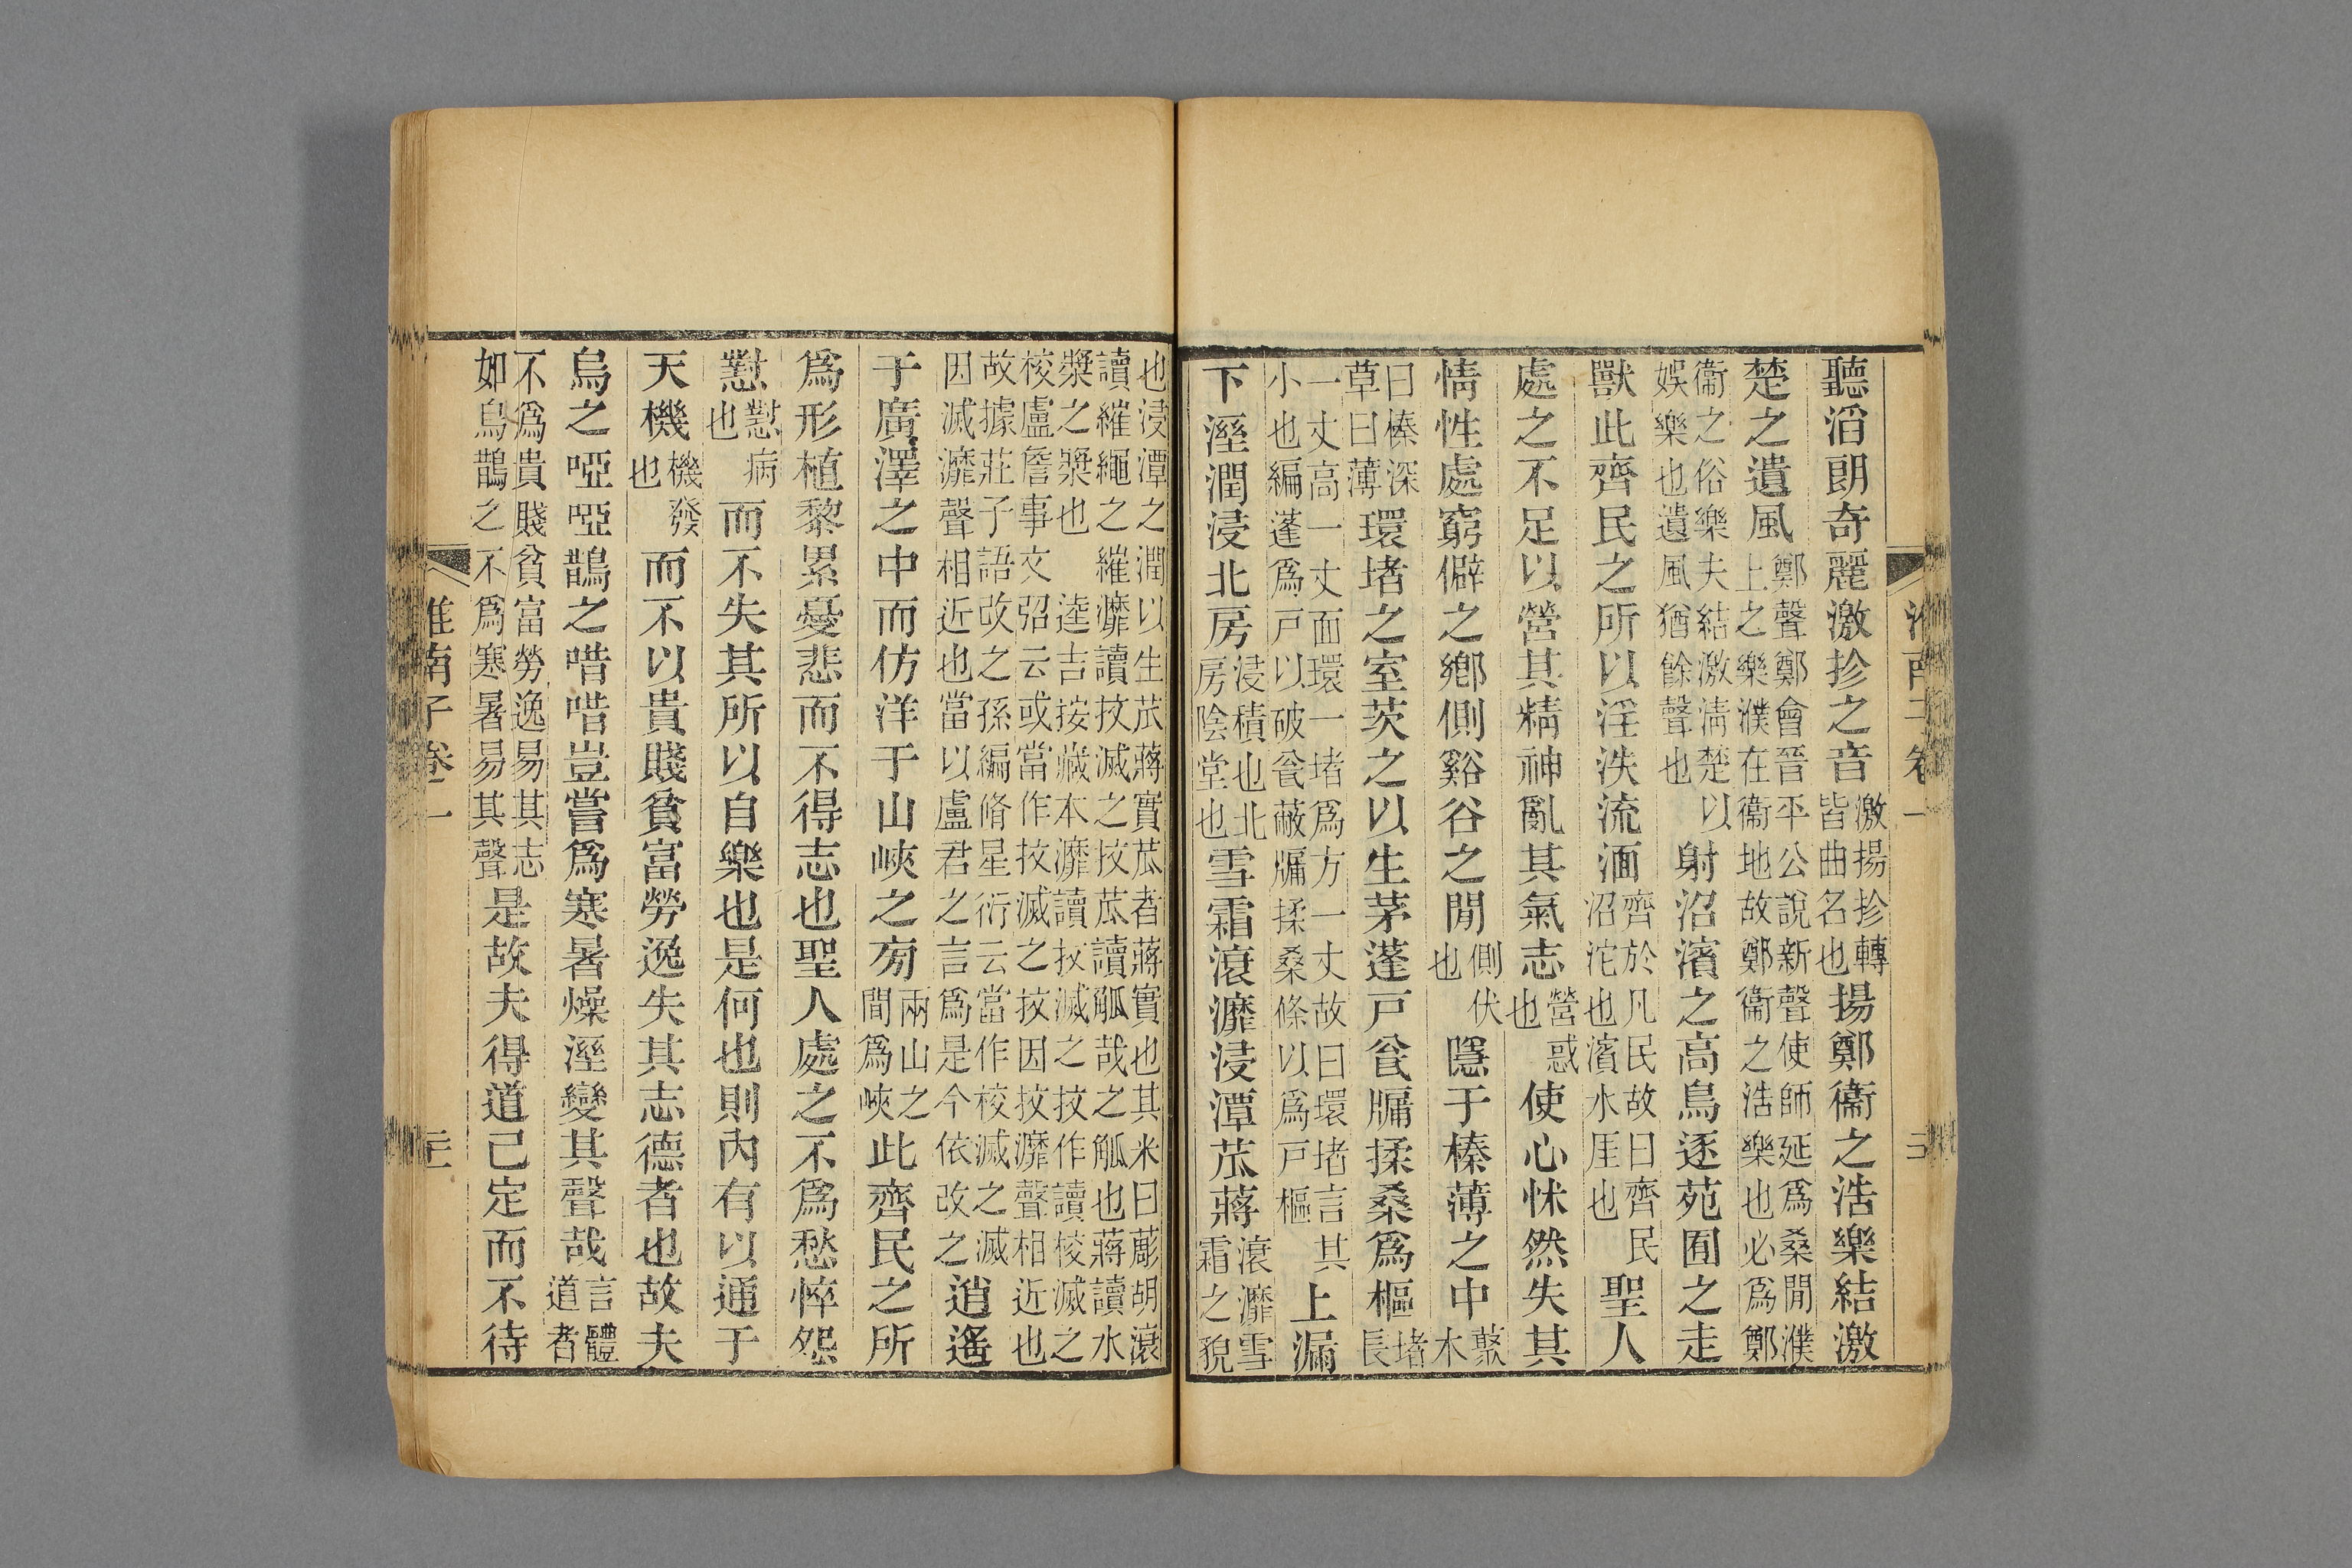 聽滔朗奇麗激抮之音激揚抮轉皆曲名也揚鄭衞之浩樂結激
楚之遺風鄭聲鄭會晉平公說新聲使師延爲桑閒濮上之樂濮在衞地故鄭衞之浩樂也必爲鄭
衞之俗樂夫結激淸楚以娛樂也遺風猶餘聲也射沼濱之高鳥逐苑囿之走
獸此齊民之所以淫泆流湎齊於凡民故曰齊民沼沱也濱水厓也聖人
處之不足以營其精神亂其氣志營惑也使心怵然失其
情性處窮僻之鄉側谿谷之閒側伏也隱于榛薄之中藂木
曰榛深草曰薄環堵之室茨之以生茅蓬戸瓮牖揉桑爲樞堵長
一丈高一丈面環一堵爲方一丈故曰環堵言其小也編蓬爲戸以破瓮蔽牖揉桑條以爲戸樞上漏
下溼潤浸北房浸積也北房陰堂也雪霜滖灖浸潭苽蔣滖灖雪霜之貌
也浸潭之潤以生苽蔣實苽者蔣實也其米曰彫胡滖
讀繀繩之繀灖讀抆滅之抆苽讀觚哉之觚也蔣讀水
漿之漿也 逵吉按藏本灖讀抆滅之抆作讀校滅之
校盧詹事文弨云或當作抆滅之抆因抆灖聲相近也
故據莊子語改之孫編脩星衍云當作校滅之滅
因滅灖聲相近也當以盧君之言爲是今依改之逍遙
于廣澤之中而仿洋于山峽之旁兩山之間爲峽此齊民之所
爲形植黎累憂悲而不得志也聖人處之不爲愁悴怨
懟懟病也而不失其所以自樂也是何也則內有以通于
天機機發也而不以貴賤貧富勞逸失其志德者也故夫
烏之啞啞鵲之唶唶豈嘗爲寒暑燥溼變其聲哉言體道者
不爲貴賤貧富勞逸易其志如烏鵲之不爲寒暑易其聲是故夫得道已定而不待
淮南子卷一